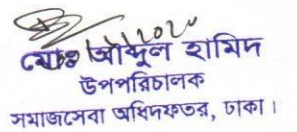 মোঃ আব্দুল হামিদ
উপপরিচালক
সমাজসেবা অধিদফতর, ঢাকা।